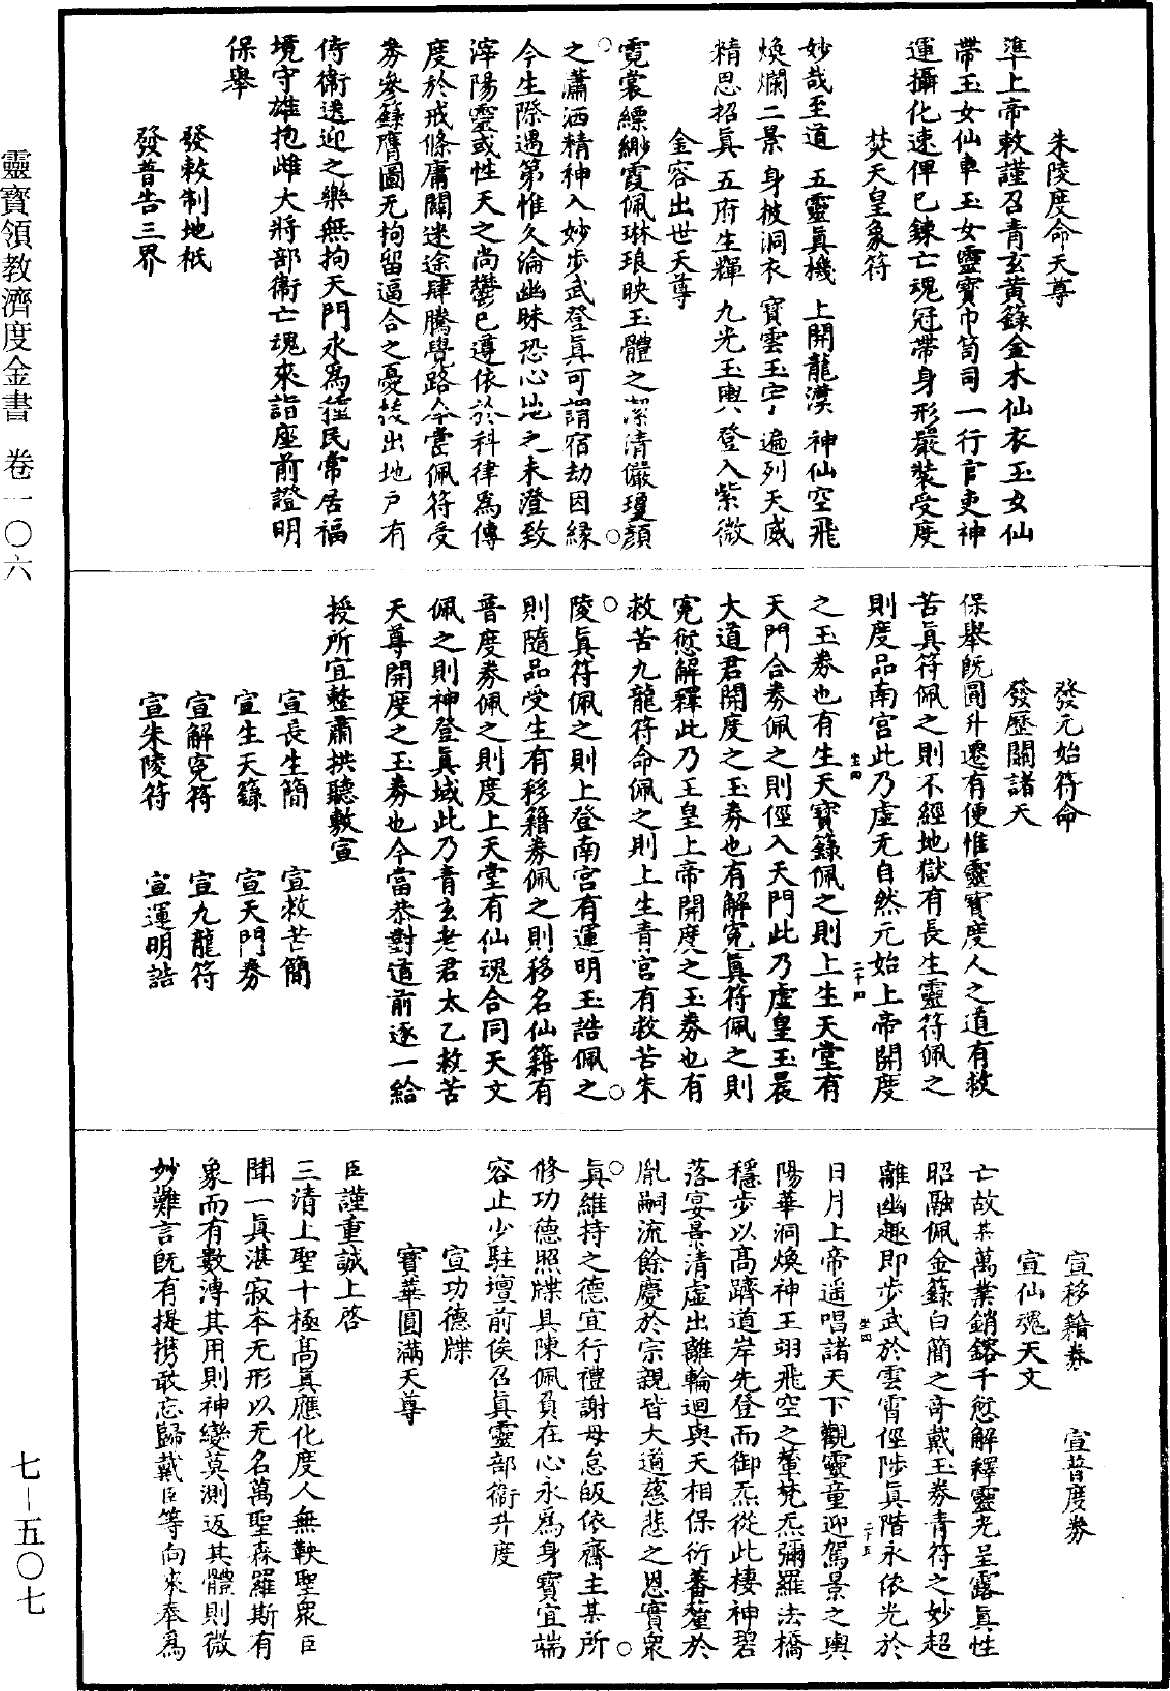 靈寶領教濟度金書　卷一〇六
七－五〇七
朱陵度命天尊
準上帝敕謹召青玄黃籙金木仙衣玉女仙
帶玉女仙車玉女靈寶巾笥司一行官吏神
運攝化速俾已鍊亡魂冠帶身形嚴裝受度
焚天皇象符
妙哉至道　五靈真機　上開龍漢　神仙空飛
煥爛二景　身披洞衣　寶雲玉字　遍列天威
精思招真　五府生輝　九光玉輿　登入紫微
金容出世天尊
霓裳縹緲霞佩琳琅映玉體之潔清儼瓊顏
之瀟洒精神入妙步武登真可謂宿劫因緣
今生際遇第惟久淪幽昧恐心地之未澄致
滓陽靈或性天之尚欝已遵依於科律為傳
度於戒條庸闢迷途肆騰覺路今當佩符受
券參籙膺圖无拘留逼合之憂拔出地戶有
侍衛送迎之樂無拘天門永為種民常居福
境守雄抱雌大將部衛亡魂來詣座前證明
保舉
發敕制地祇
發普告三界
發元始符命
發歷關諸天
保舉既圓升遷有便惟靈寶度人之道有救
苦真符佩之則不經地獄有長生靈符佩之
則度品南宮此乃虛无自然元始上帝開度
之玉券也有生天寶籙佩之則上生天堂有
天門合券佩之則徑入天門此乃虛皇玉晨
大道君開度之玉券也有解冤真符佩之則
冤愆解釋此乃玉皇上帝開度之玉券也有
救苦九龍符命佩之則上生青宮有救苦朱
陵真符佩之則上登南宮有運明玉誥佩之
則隨品受生有移籍券佩之則移名仙籍有
普度券佩之則度上天堂有仙魂合同天文
佩之則神登真域此乃青玄老君太乙救苦
天尊開度之玉券也今當恭對道前逐一給
授所宜整肅拱聽敷宣
宣長生簡　宣救苦簡
宣生天籙　宣天門券
宣解冤符　宣九龍符
宣朱陵符　宣運明誥
宣移籍券　宣普度券
宣仙魂天文
亡故某萬業銷鎔千愆解釋靈光呈露真性
昭融佩金籙白簡之奇戴玉券青符之妙超
離幽趣即步武於雲霄徑陟真階永依光於
日月上帝遥唱諸天下觀靈童迎駕景之輿
陽華洞煥神王翊飛空之輦梵炁彌羅法橋
穩步以高躋道岸先登而御炁從此棲神碧
落宴景清虛出離輪迴與天相保衍蕃釐於
胤嗣流餘慶於宗親皆大道慈悲之恩實衆
真維持之德宜行禮謝毋怠皈依齋主某所
修功德照牒具陳佩負在心永為身寶宜端
容止少駐壇前俟召真靈部衛升度
宣功德牒
寶華圓滿天尊
臣謹重誠上啓
三清上聖十極高真應化度人無鞅聖衆臣
聞一真湛寂本无形以无名萬聖森羅斯有
象而有數溥其用則神變莫測返其體則微
妙難言既有提携敢忘歸戴臣等向來奉為